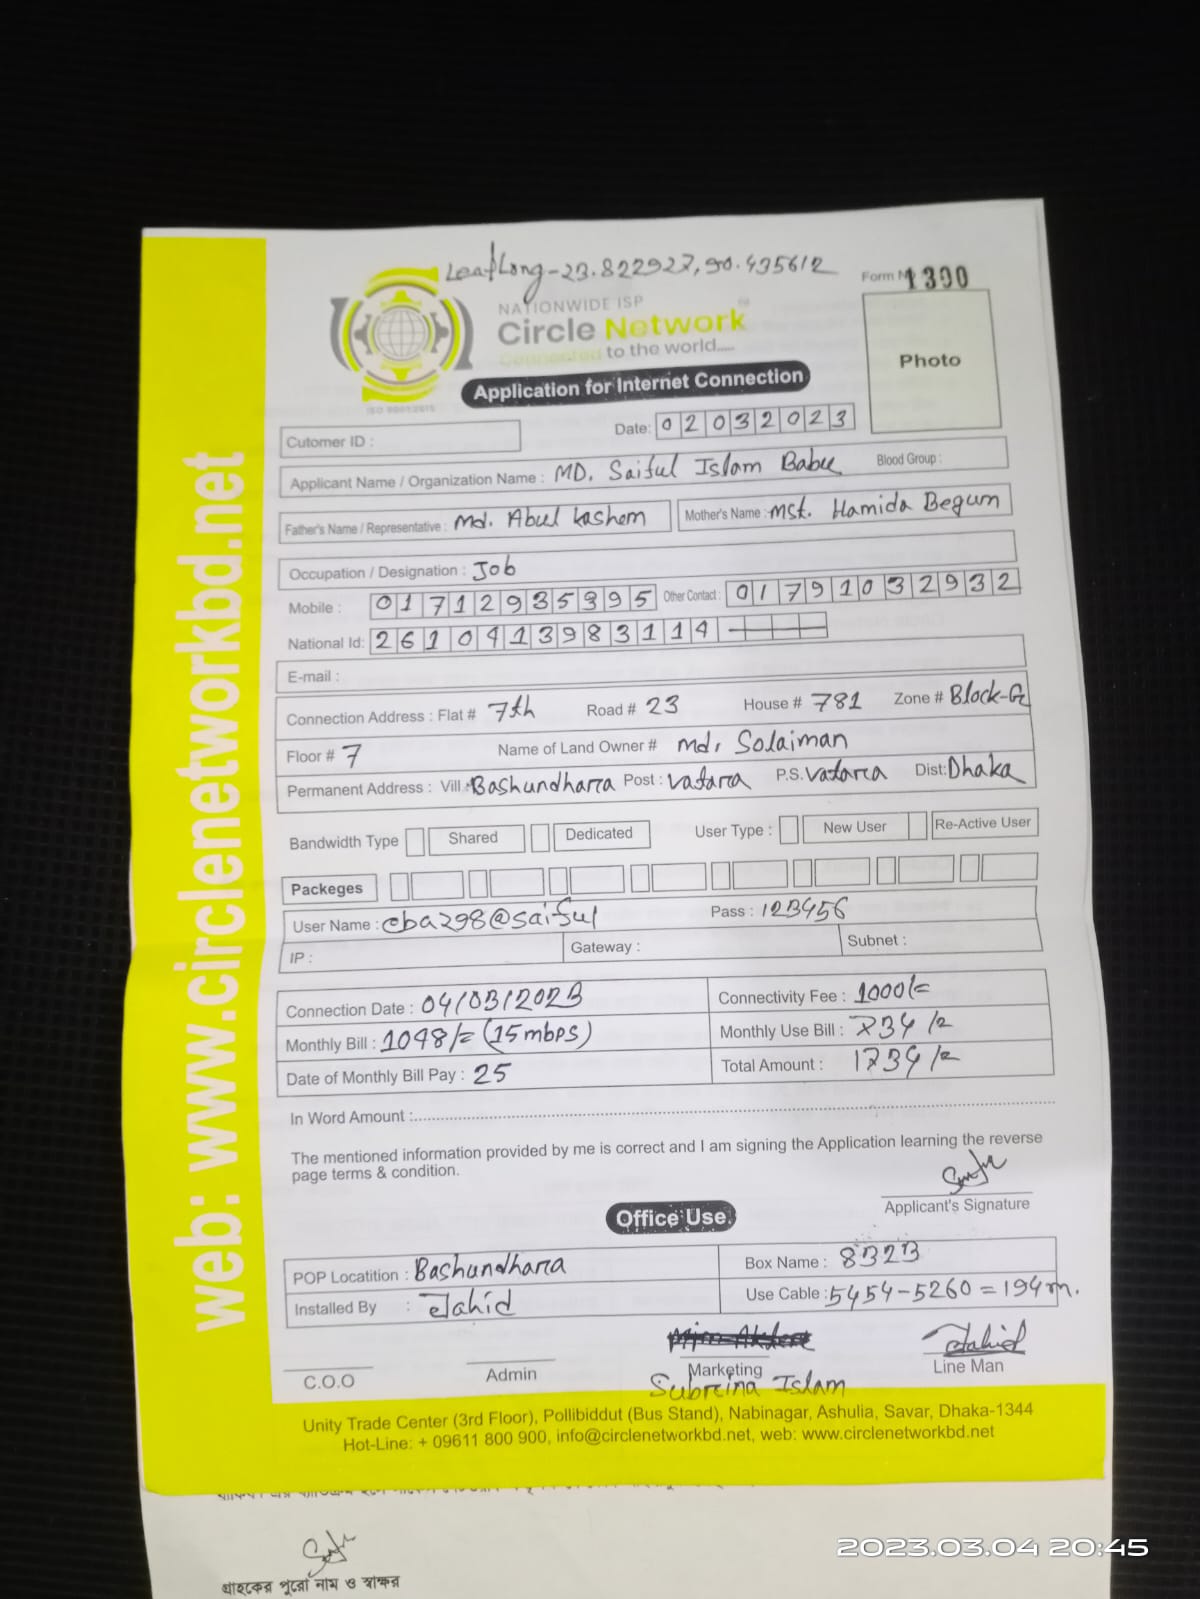 Leaflong-23.822927,90.435612
Form N 1300
NATIONWIDE ISP
Circle Network
Connected to the world.....
ISO 9001:2015
Photo
Application for Internet Connection
Cutomer ID :
Date: 02032023
Applicant Name / Organization Name : MD. Saiful Islam Babu Blood Group :
Father's Name / Representative : Md. Abul Kashem Mother's Name : Mst. Hamida Begum
Occupation / Designation : Job
Mobile : 01712935395 Other Contact : 01791032932
National Id: 2610413983114
E-mail :
Connection Address : Flat # 7th Road # 23 House # 781 Zone # Block-G
Floor # 7 Name of Land Owner # Md. Solaiman
Permanent Address : Vill : Bashundhara Post : Vatara P.S. Vatara Dist: Dhaka
Bandwidth Type Shared Dedicated User Type : New User Re-Active User
Packeges
User Name : cba298@saiful Pass : 123456
IP : Gateway : Subnet :
Connection Date : 04/03/2023 Connectivity Fee : 1000/=
Monthly Bill : 1048/= (15mbps) Monthly Use Bill : 734/=
Date of Monthly Bill Pay : 25 Total Amount : 1734/=
In Word Amount :
The mentioned information provided by me is correct and I am signing the Application learning the reverse
page terms & condition.
Applicant's Signature
Office Use
POP Locatition : Bashundhara Box Name : 8323
Installed By : Jahid Use Cable : 5454-5260=194m.
Jahid
C.O.O Admin Marketing Line Man
Subreina Islam
Unity Trade Center (3rd Floor), Pollibiddut (Bus Stand), Nabinagar, Ashulia, Savar, Dhaka-1344
Hot-Line: + 09611 800 900, info@circlenetworkbd.net, web: www.circlenetworkbd.net
web: www.circlenetworkbd.net
গ্রাহকের পুরো নাম ও স্বাক্ষর
2023.03.04 20:45